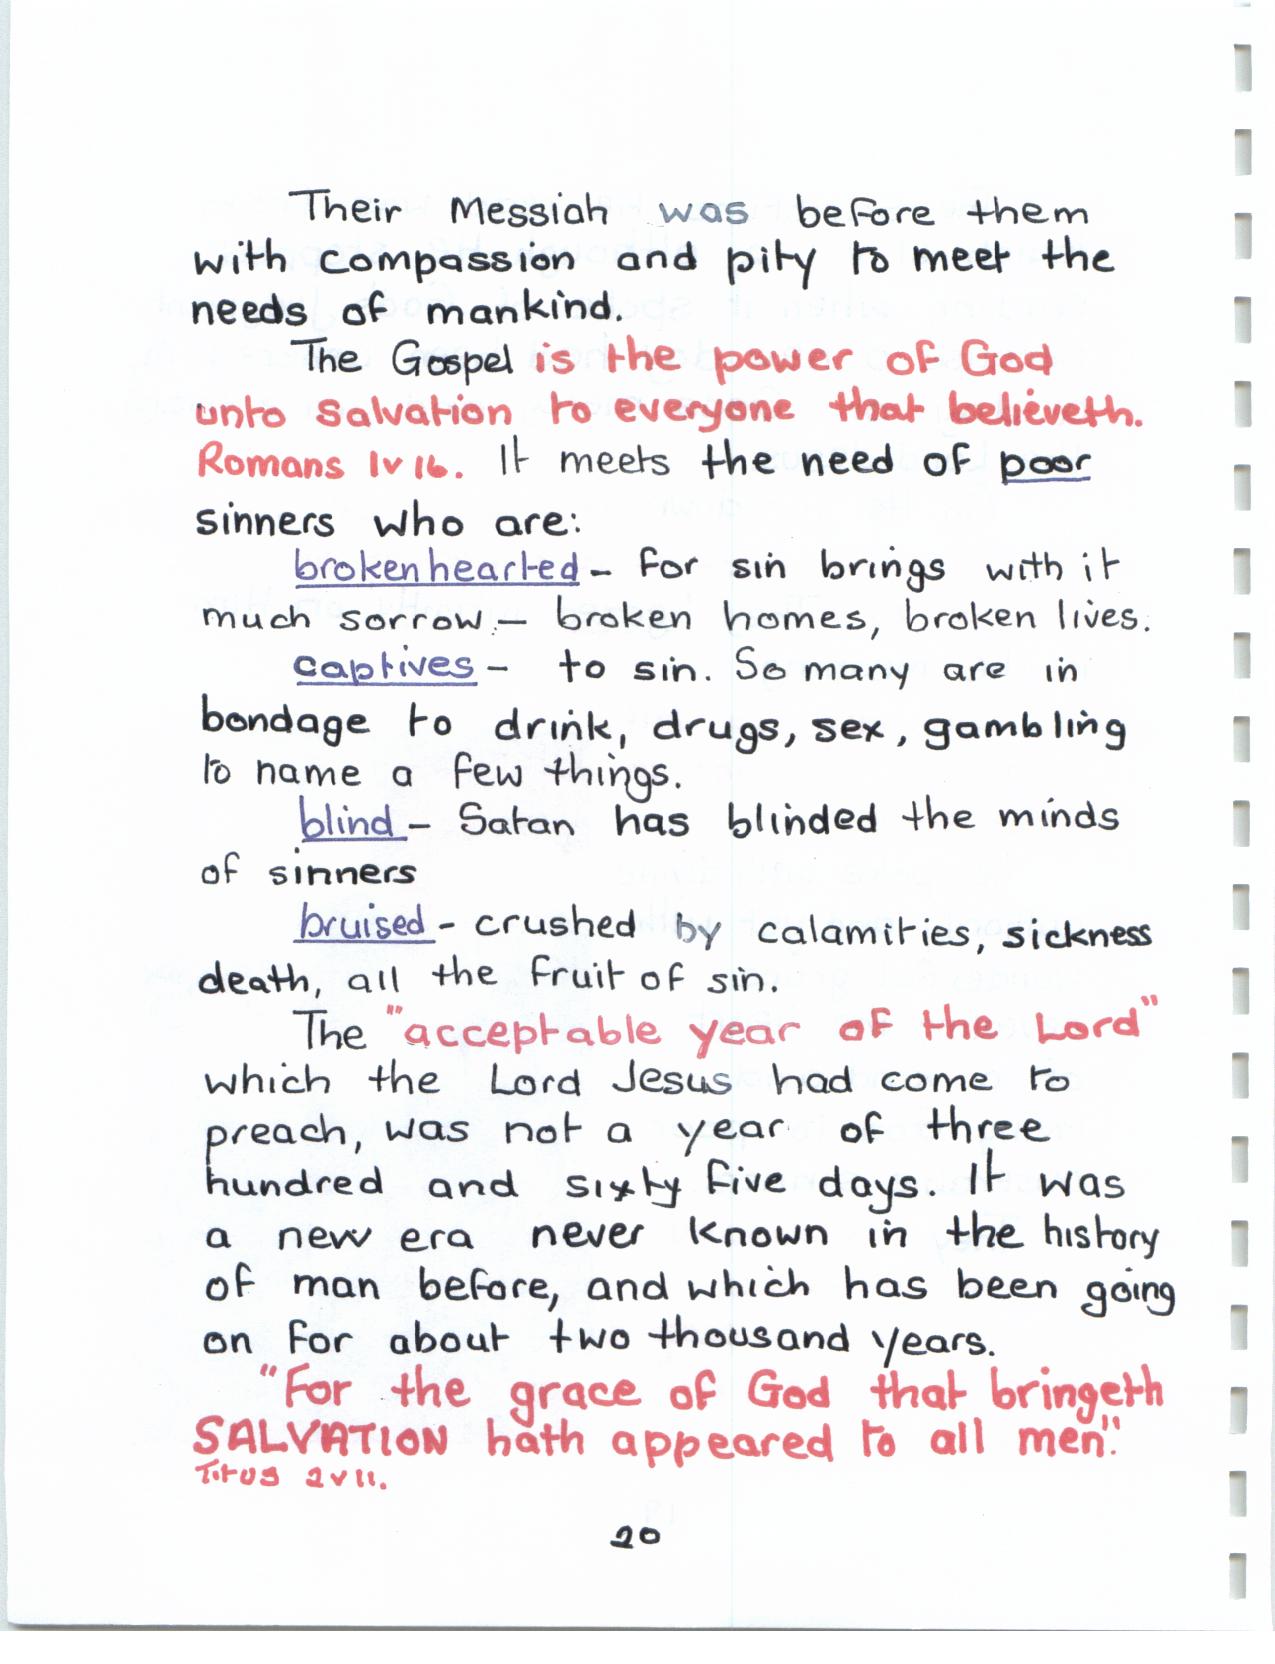 Their Messiah was before them
with compassion and pity to meet the
needs of mankind.
The Gospel is the power of God
unto salvation to everyone that believeth.
Romans 1v16. It meets the need of poor
sinners who are:
brokenhearted - for sin brings with it
much sorrow - broken homes, broken lives.
captives - to sin. So many are in
bondage to drink, drugs, sex, gambling
to name a few things.
blind - Satan has blinded the minds
of sinners
bruised - crushed by calamities, sickness
death, all the fruit of sin.
The "acceptable year of the Lord"
which the Lord Jesus had come to
preach, was not a year of three
hundred and sixty five days. It was
a new era never known in the history
of man before, and which has been going
on for about two thousand years.
"For the grace of God that bringeth
SALVATION hath appeared to all men".
Titus 2v11.
20